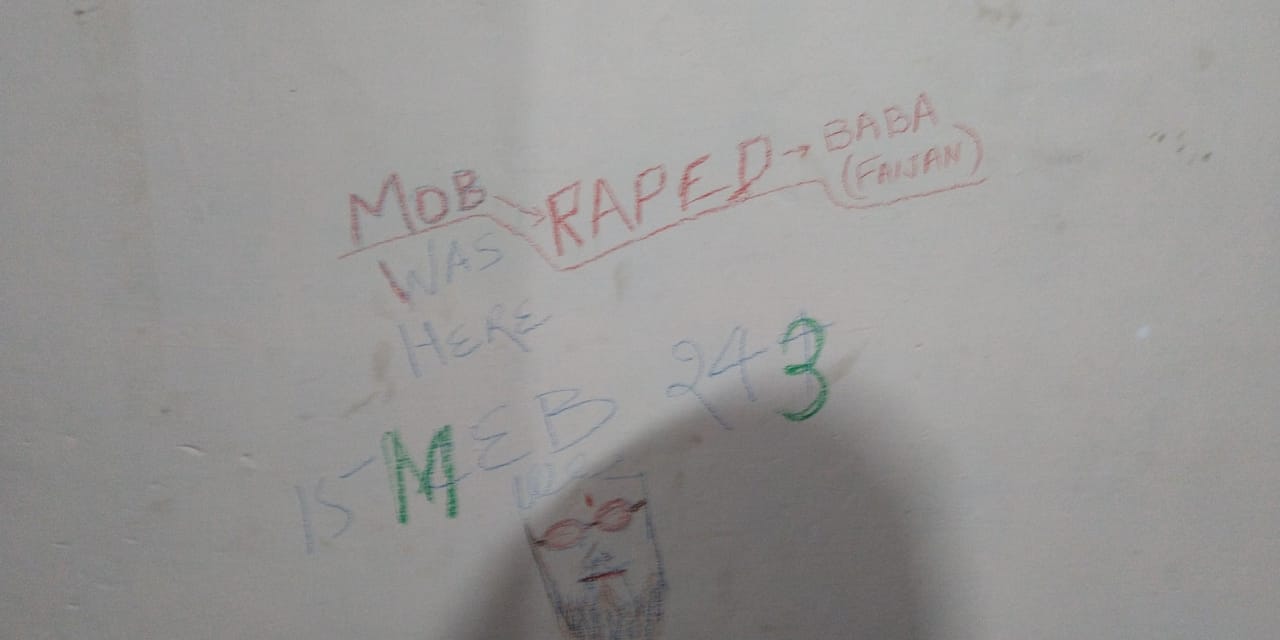 MOB → RAPED → BABA
(FAIJAN)
WAS
HERE
15 MEB 243